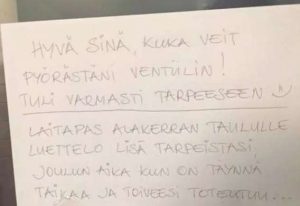 HYVÄ SINÄ, KUKA VEIT
PYÖRÄSTÄNI VENTTIILIN!
TULI VARMASTI TARPEESEEN
LAITAPAS ALAKERRAN TAULULLE
LUETTELO LISÄ TARPEISTASI
JOULUN AIKA KUN ON TÄYNNÄ
TAIKAA JA TOIVEESI TOTEUTUU...